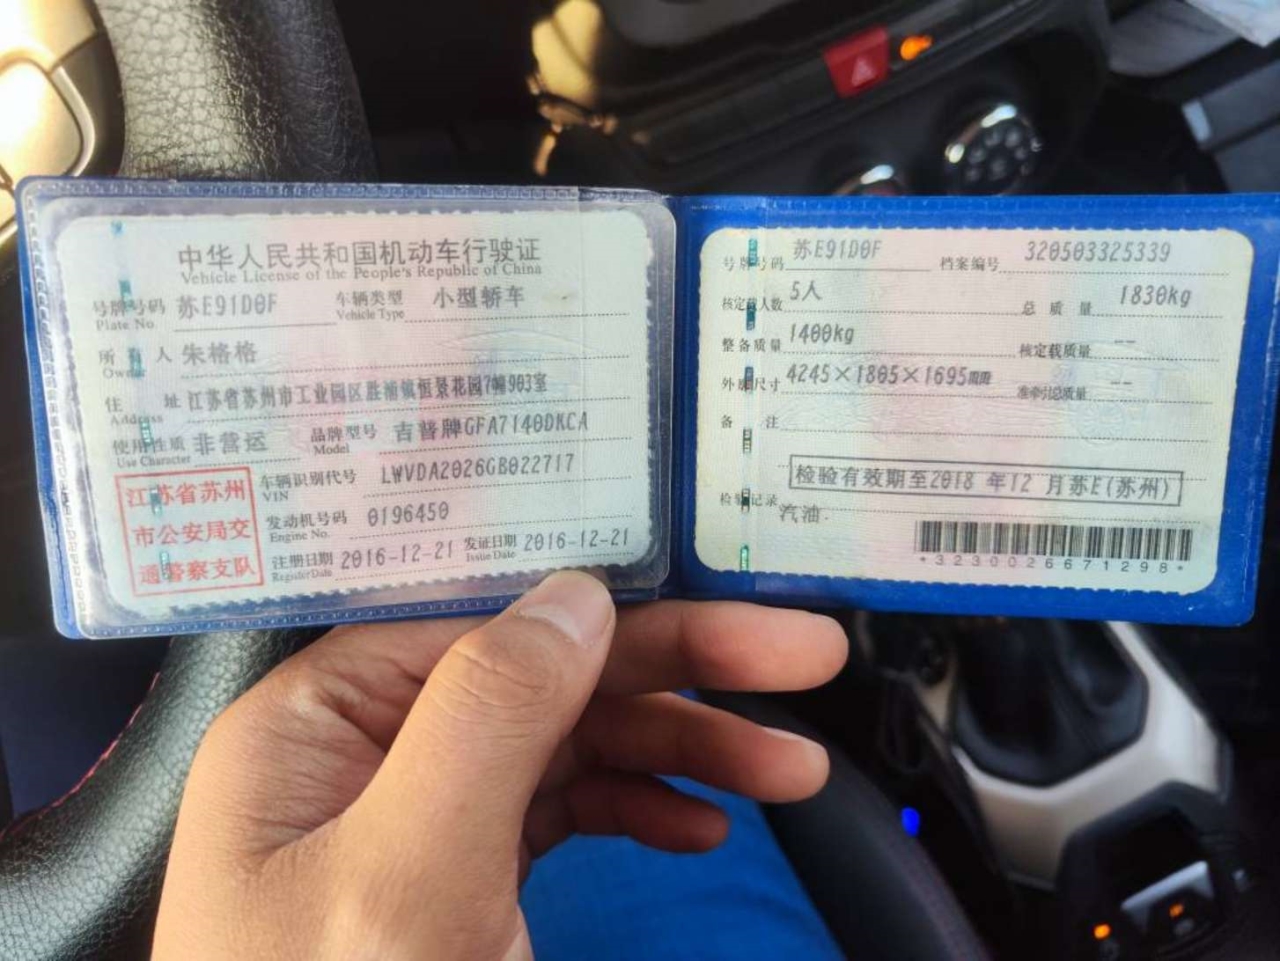 中华人民共和国机动车行驶证
Vehicle License of the People's Republic of China
号牌号码 苏E91D0F 车辆类型 小型轿车
Plate No. Vehicle Type
所有人 朱格格
Owner
住址 江苏省苏州市工业园区胜浦镇恒景花园7幢903室
Address
使用性质 非营运 品牌型号 吉普牌GFA7140DKCA
Use Character Model
江苏省苏州
市公安局交
通警察支队
车辆识别代号 LWVDA2026GB022717
VIN
发动机号码 0196450
Engine No.
注册日期 2016-12-21 发证日期 2016-12-21
Register Date Issue Date
号牌号码 苏E91D0F 档案编号 320503325339
核定载人数 5人 总质量 1830kg
整备质量 1400kg 核定载质量 --
外廓尺寸 4245×1805×1695mm 准牵引总质量 --
备注
检验有效期至2018 年12 月苏E(苏州)
检验记录
汽油
*3230026671298*